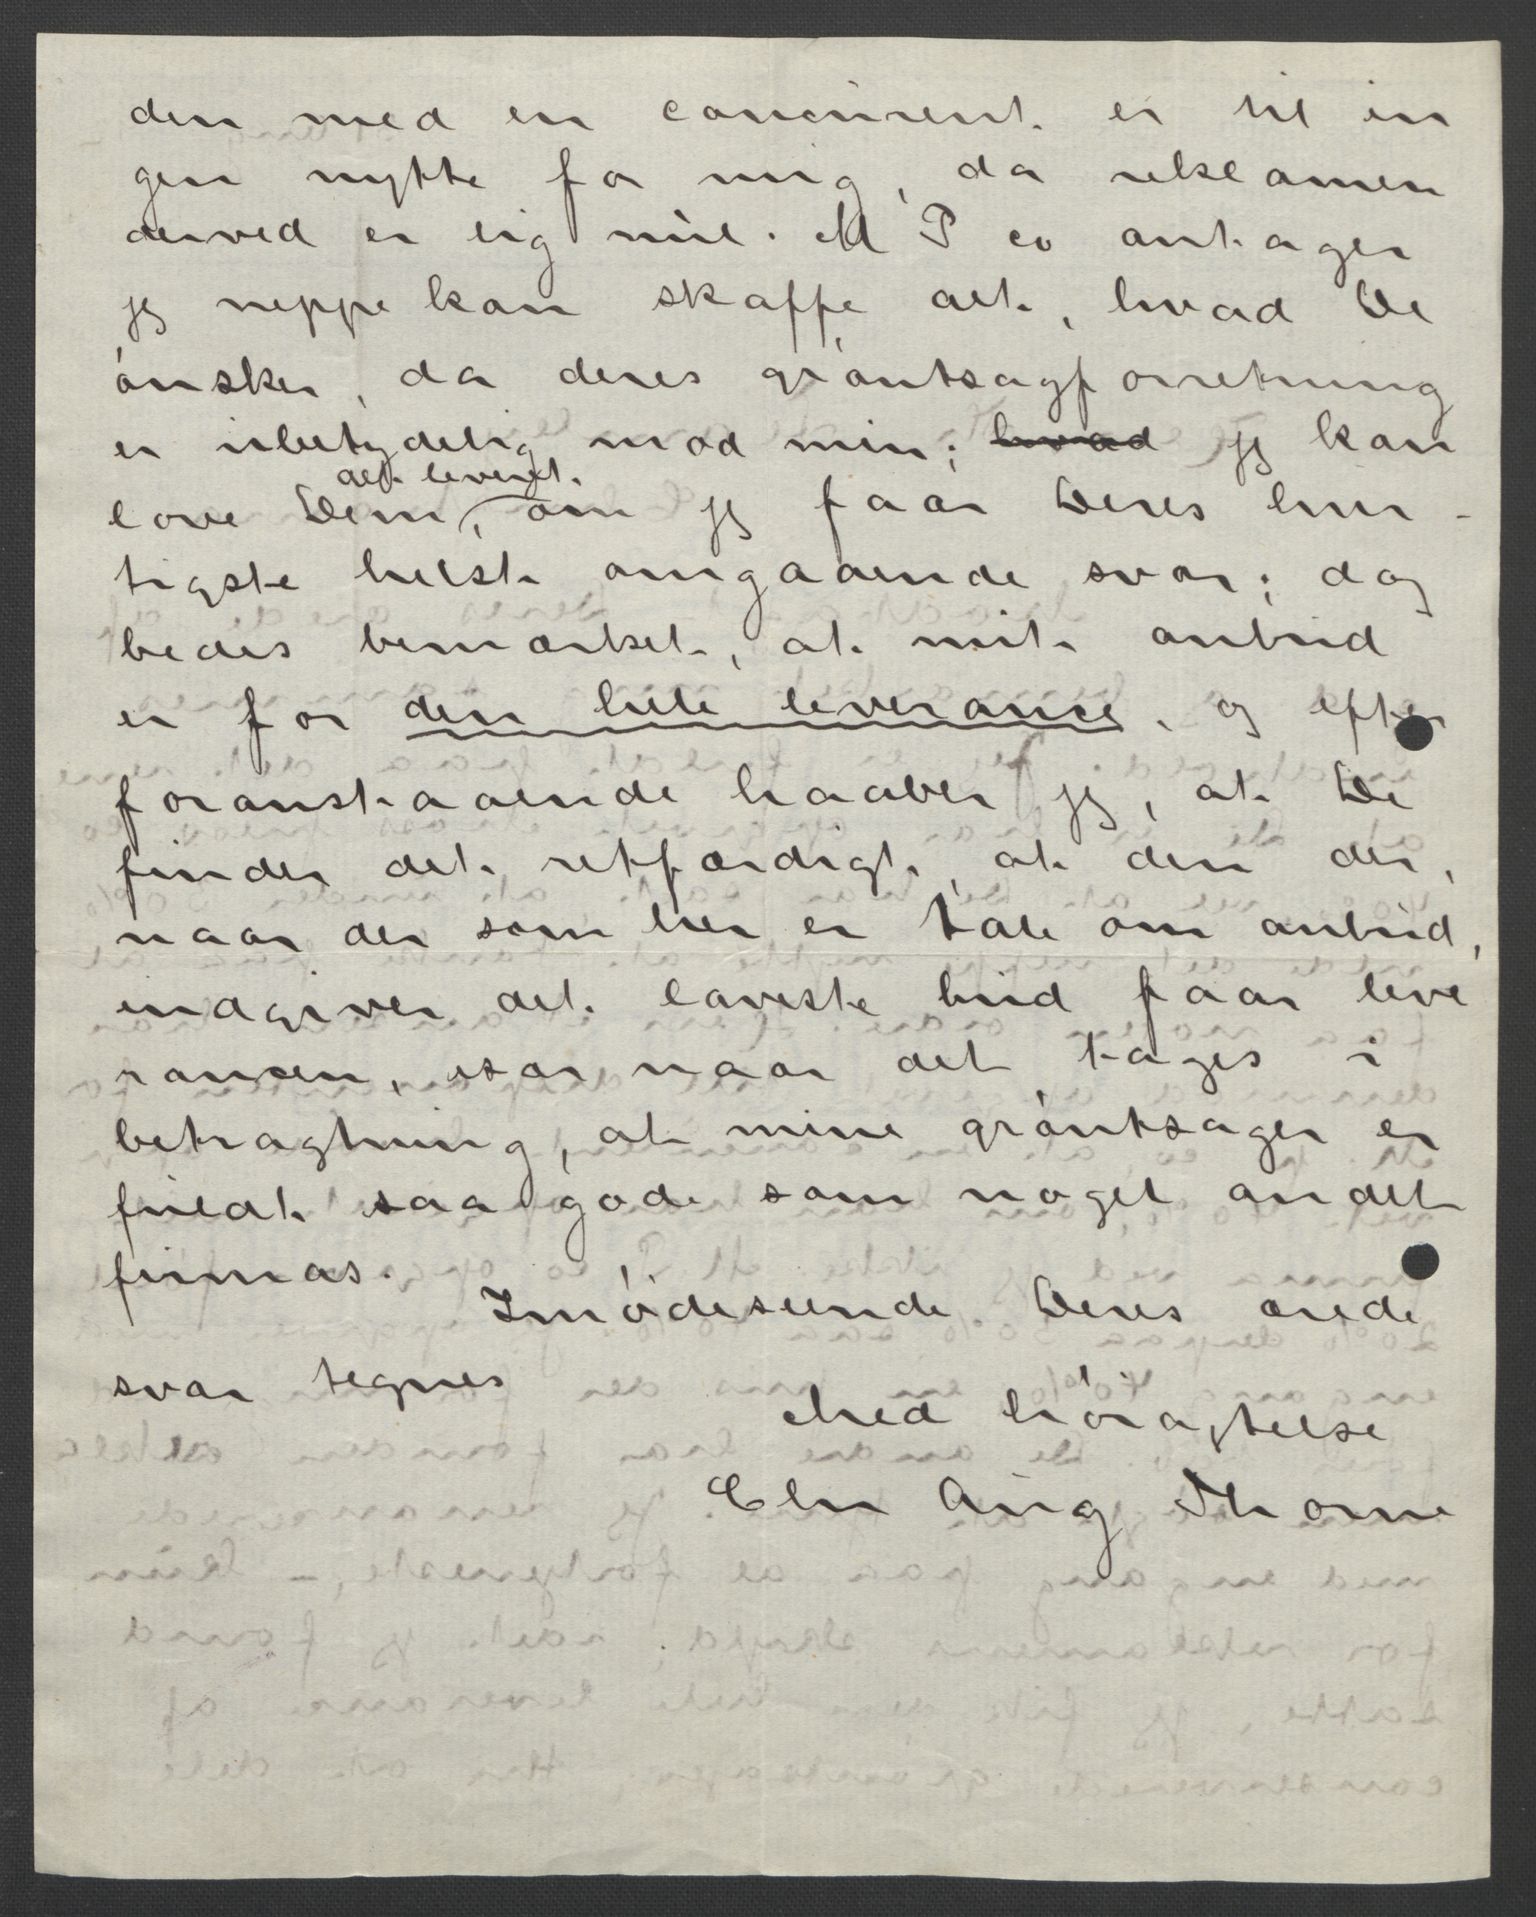 den med en concurrent er til in
gen nytte for mig, da reklamen
derved er lig nul. M P co antager
jeg neppe kan skaffe alt, hvad De
ønsker, da deres grøntsagforretning
er ubetydelig mod min; hvad jeg kan
love Dem, alt leveret, om jeg faar Deres hur-
tigste helst omgaaende svar; dog
bedes bemærket, at mit anbud
er for den hele leverance, og efter
foranstaaende haaber jeg, at De
finder det retfærdigt, at den der,
naar der som her er tale om anbud,
indgiver det laveste bud faar leve
rancen, især naar det tages i
betragtning, at mine grøntsager er
fuldt saa gode som noget andet
firmas.
Imødeseende Deres ærede
svar tegnes
Med høiagtelse
Chr Aug Thorne